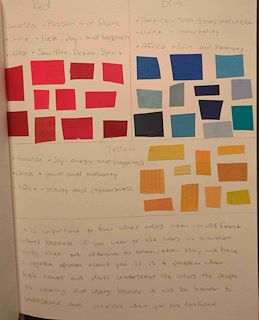 Red
America - Passion and Desire
China - luck, Joy, and happiness
Africa - Sacrifice, Death, Spirit
Blue
America -
China - immortality
Africa - Love and harmony
Yellow
America - Joy, energy and happiness
China - power and
Africa - beauty and preciousness
It is important to know what colors mean in different
because if you wear or use colors in another
that are offensive to them, then they will have
a negative opinion about you. It is a problem when
travel and don't understand the colors the people
are wearing and using because it will be harder to
understand and interact when you are confused.